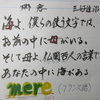 郷愁 三好達治
海よ、僕らの使う文字では、
お前の中に母がいる。
そして母よ、仏蘭西人の言葉では、
あなたの中に海がある。
mere (フランス語)